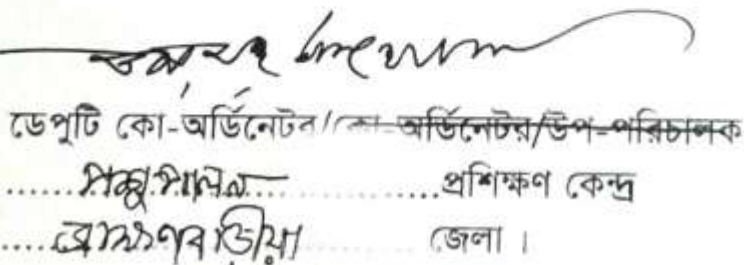 ডেপুটি কো-অর্ডিনেটর/কো-অর্ডিনেটর/উপ-পরিচালক
..... পশু পালন ..... প্রশিক্ষণ কেন্দ্র
..... ব্রাহ্মণবাড়ীয়া ..... জেলা ।